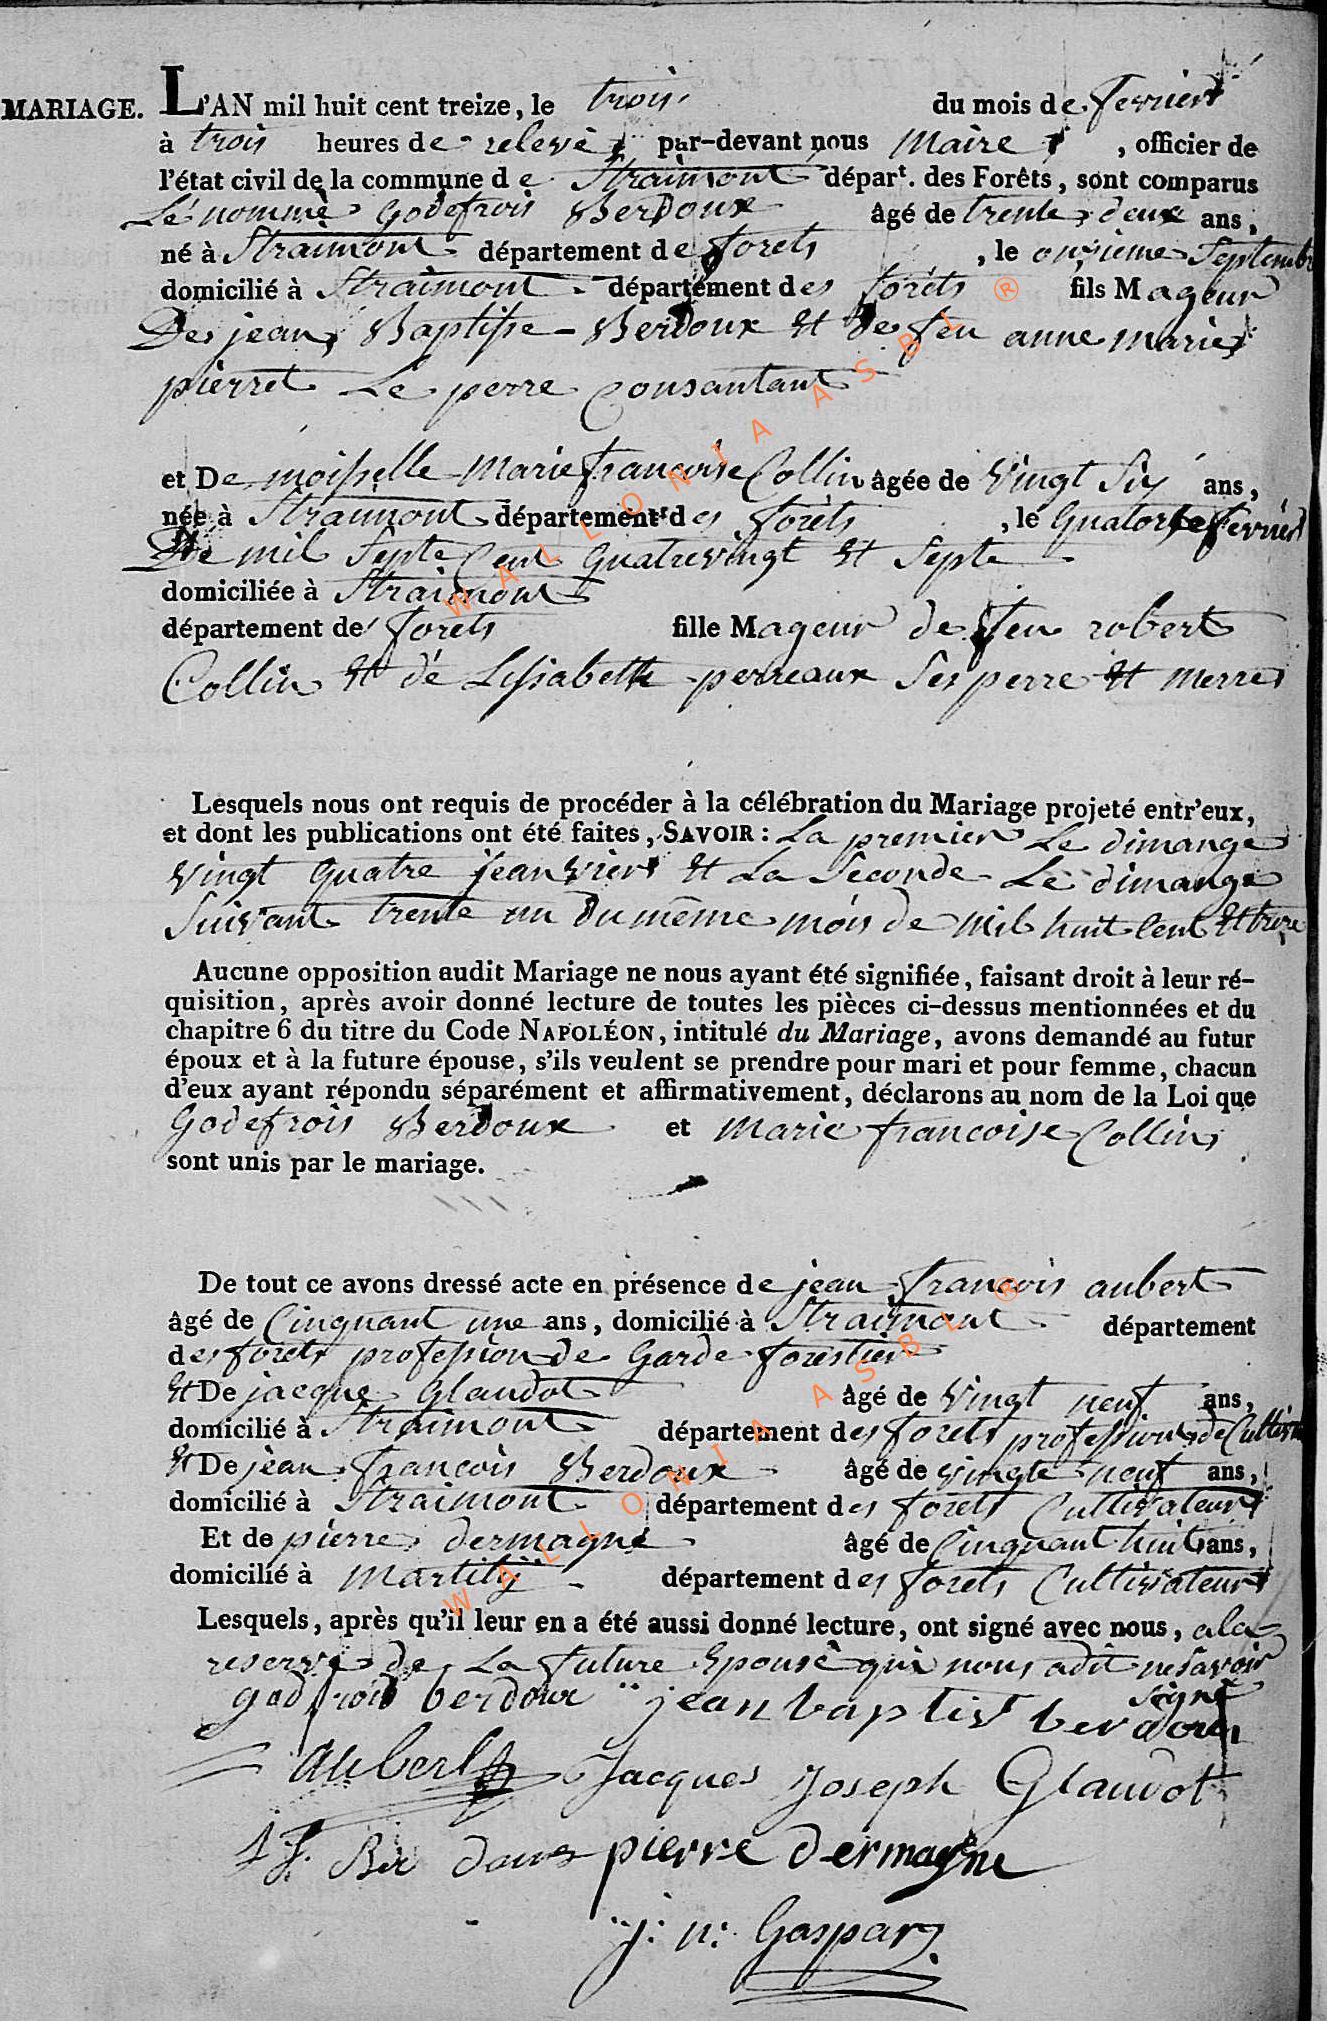 MARIAGE. L'AN mil huit cent treize, le trois du mois de fevrier
à trois heures de relevé par-devant nous Maire, officier de
l'état civil de la commune de Straimont dépar<sup>t</sup>. des Forêts, sont comparus
Le nommé Godefrois Berdoux âgé de trente deux ans,
né à Straimont département de forets, le onzieme Septembre
domicilié à Straimont département des foréts fils Mageur
De jean Baptiste Berdoux et de feu anne marie
pierret Le perre Consantant
et Demoiselle Marie francoise Collin âgée de Vingt Six ans,
née à Straimont département des foréts, le Quatorse fevrier
De mil Septe Cent Quatrevingt et Septe
domiciliée à Straimont
département de forets fille Mageur de feu robert
Collin et dé Lissabette perreaux Ses perre et merre
Lesquels nous ont requis de procéder à la célébration du Mariage projeté entr'eux,
et dont les publications ont été faites, SAVOIR : La premier Le dimange
Vingt Quatre jeanvier et La Seconde Le dimange
Suivant trente un du même mois de mil huit Cent et treze
Aucune opposition audit Mariage ne nous ayant été signifiée, faisant droit à leur ré-
quisition, après avoir donné lecture de toutes les pièces ci-dessus mentionnées et du
chapitre 6 du titre du Code NAPOLÉON, intitulé du Mariage, avons demandé au futur
époux et à la future épouse, s'ils veulent se prendre pour mari et pour femme, chacun
d'eux ayant répondu séparément et affirmativement, déclarons au nom de la Loi que
Godefrois Berdoux et Marie francoise Collin
sont unis par le mariage.
De tout ce avons dressé acte en présence de jean francois aubert
âgé de Cinquant une ans, domicilié à Straimont département
des forets profession de Garde forestier
Et De jacque Glaudot âgé de Vingt neuf ans,
domicilié à Straimont département des forets profession de
Et De jean francois Berdoux âgé de vingte neuf ans,
domicilié à Straimont département des forets Cultivateur
Et de pierre dermagne âgé de Cinquant huit ans,
domicilié à Martilij département des forets Cultivateur
Lesquels, après qu'il leur en a été aussi donné lecture, ont signé avec nous, ala
reserve de La future Epouse qui nous adit ne savoir
signé
godfrois berdoux jean baptist berdoux
Aubert Jacques Joseph Glaudot
J f. Ber doux pierre dermagne
j: n: Gaspar
WALLONIA ASBL ®
WALLONIA ASBL ®